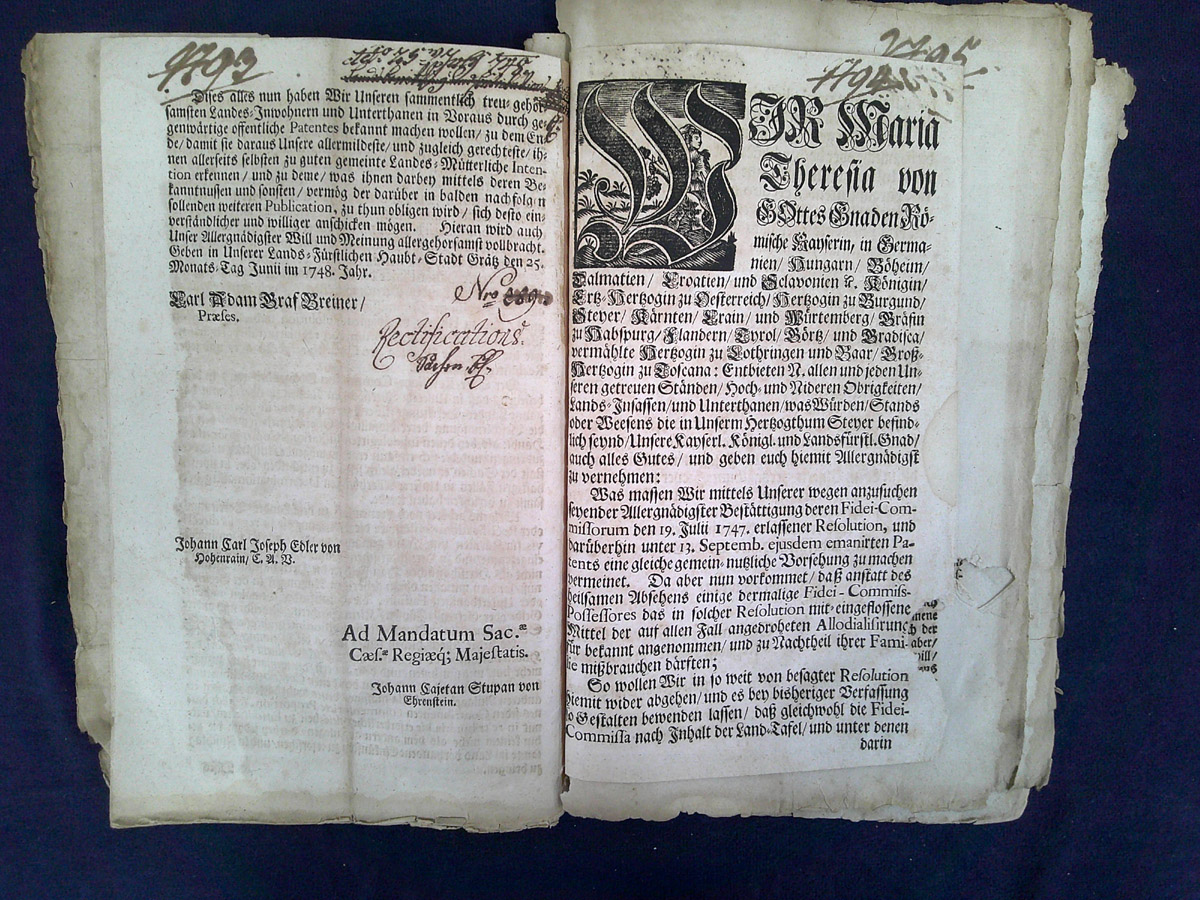 1793
Dises alles nun haben Wir Unseren sammentlich treu-gehor-
samsten Landes-Inwohnern und Unterthanen in Voraus durch ge-
genwärtige offentliche Patentes bekannt machen wollen/ zu dem En-
de/ damit sie daraus Unsere allermildeste/ und zugleich gerechteste/ ih-
nen allerseits selbsten zu guten gemeinte Landes-Mütterliche Inten-
tion erkennen/ und zu deme/ was ihnen darbey mittels deren Be-
kanntnussen und sonsten/ vermög der darüber in balden nachfolgen
sollenden weiteren Publication, zu thun obligen wird/ sich desto ein-
verständlicher und williger anschicken mögen. Hieran wird auch
Unser Allergnädigster Will und Meinung allergehorsamst vollbracht.
Geben in Unserer Lands-Fürstlichen Haubt-Stadt Grätz den 25.
Monats-Tag Junii im 1748. Jahr.
Carl Adam Graf Breiner/
Præses.
Nro
Rectifications
Sachen
Johann Carl Joseph Edler von
Hohenrain/ C. A. V.
Ad Mandatum Sac.æ
Cæs.æ Regiæq; Majestatis.
Johann Cajetan Stupan von
Ehrenstein.
1795
1794
WIR Maria
Theresia von
GOttes Gnaden Rö-
mische Kayserin, in Germa-
nien/ Hungarn/ Böheim/
Dalmatien/ Croatien/ und Sclavonien ꝛc. Königin/
Ertz-Hertzogin zu Oesterreich/ Hertzogin zu Burgund/
Steyer/ Kärnten/ Crain/ und Würtemberg/ Gräfin
zu Habspurg/ Flandern/ Tyrol/ Görtz/ und Gradisca/
vermählte Hertzogin zu Lothringen und Baar/ Groß-
Hertzogin zu Toscana: Entbieten N. allen und jeden Un-
seren getreuen Ständen/ Hoch- und Nideren Obrigkeiten/
Lands-Insassen/ und Unterthanen/ was Würden/ Stands
oder Weesens die in Unserm Hertzogthum Steyer befind-
lich seynd/ Unsere Kayserl. Königl. und Landsfürstl. Gnad/
auch alles Gutes/ und geben euch hiemit Allergnädigst
zu vernehmen:
Was massen Wir mittels Unserer wegen anzusuchen
seyender Allergnädigster Bestättigung deren Fidei-Com-
missorum den 19. Julii 1747. erlassener Resolution, und
darüberhin unter 13. Septemb. ejusdem emanirten Pa-
tents eine gleiche gemein-nutzliche Vorsehung zu machen
vermeinet. Da aber nun vorkommet/ daß anstatt des
heilsamen Absehens einige dermalige Fidei-Commiss-
Possessores das in solcher Resolution mit-eingeflossene
Mittel der auf allen Fall angedroheten Allodialisirung
für bekannt angenommen/ und zu Nachtheil ihrer Fami-
lie mißbrauchen därften;
So wollen Wir in so weit von besagter Resolution
hiemit wider abgehen/ und es bey bisheriger Verfassung
so Gestalten bewenden lassen/ daß gleichwohl die Fidei-
Commissa nach Inhalt der Land-Tafel/ und unter denen
darin